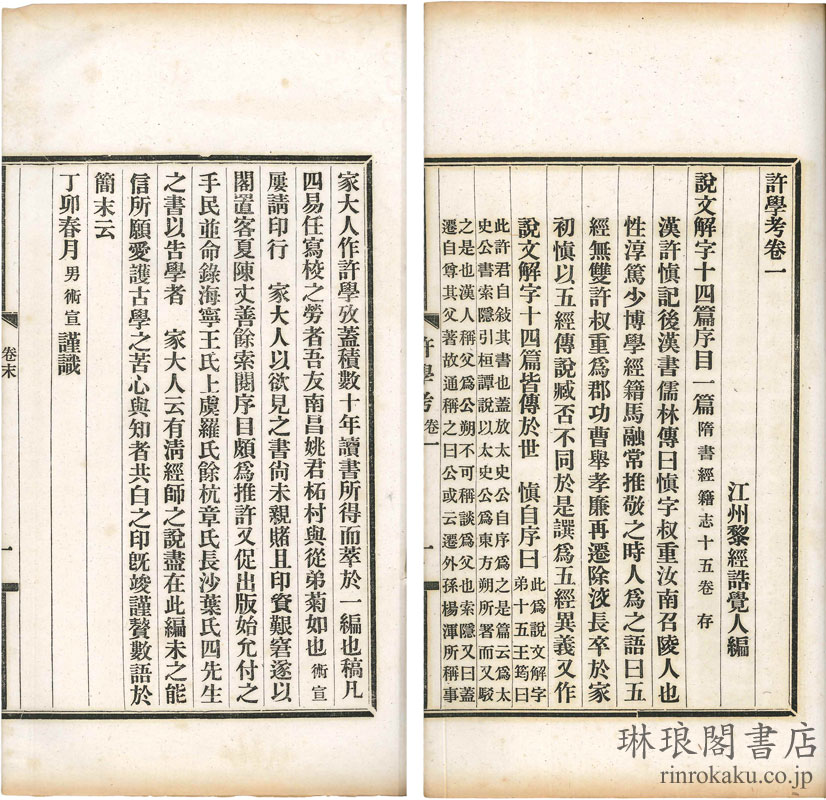 許學考卷一
江州黎經誥覺人編
說文解字十四篇序目一篇 隋書經籍志十五卷 存
漢許慎記後漢書儒林傳曰慎字叔重汝南召陵人也
性淳篤少博學經籍馬融常推敬之時人爲之語曰五
經無雙許叔重爲郡功曹舉孝廉再遷除洨長卒於家
初慎以五經傳說臧否不同於是譔爲五經異義又作
說文解字十四篇皆傳於世 慎自序曰 此爲說文解字
弟十五王筠曰
此許君自敍其書也蓋放太史公自序爲之是篇云爲太
史公書索隱引桓譚說以太史公爲東方朔所署而又駁
之是也漢人稱父爲公朔不可稱談爲父也索隱又曰蓋
遷自尊其父著故通稱之曰公或云遷外孫楊渾所稱事
許學考 卷一
一
家大人作許學攷蓋積數十年讀書所得而萃於一編也稿凡
四易任寫校之勞者吾友南昌姚君柘村與從弟菊如也 術宣
屢請印行 家大人以欲見之書尙未親賭且印資艱窘遂以
閣置客夏陳丈善餘索閱序目頗爲推許又促出版始允付之
手民並命錄海寧王氏上虞羅氏餘杭章氏長沙葉氏四先生
之書以告學者 家大人云有清經師之說盡在此編未之能
信所願愛護古學之苦心與知者共白之印旣竣謹贅數語於
簡末云
丁卯春月 男 術宣 謹識
卷末
一
琳琅閣書店
rinrokaku.co.jp